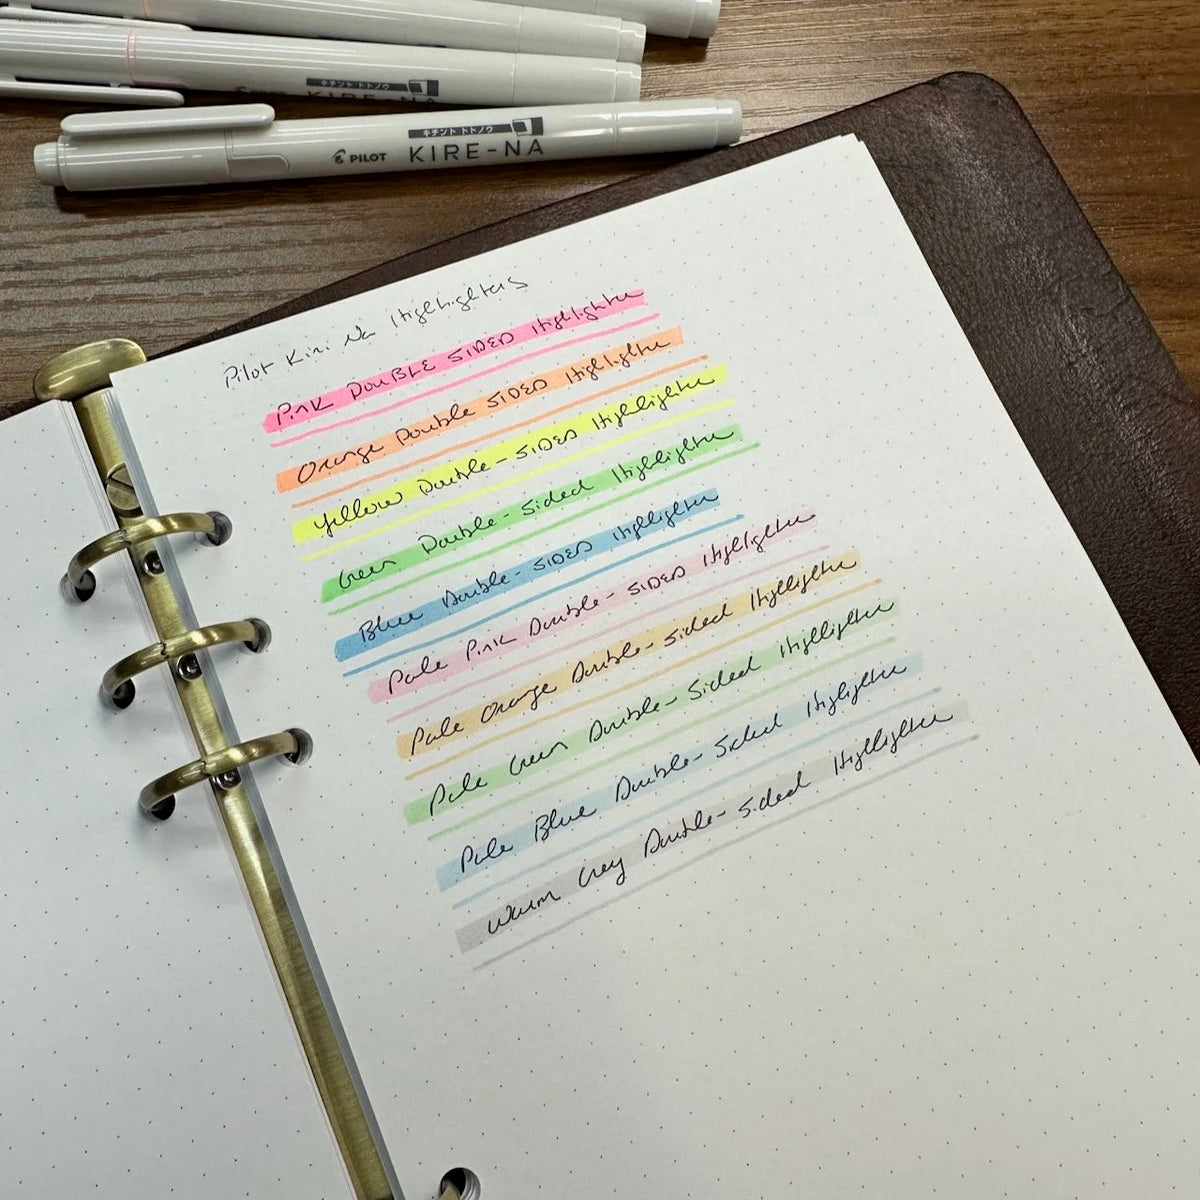 キチント トトノウ
KIRE-NA
キチント トトノウ
PILOT KIRE-NA
Pilot Kiri Na Highlighters
Pink DOUBLE SIDED Highlighter
Orange Double SIDED Highlighter
Yellow Double-SIDED Highlighter
Green Double-Sided Highlighter
Blue Double-SIDED Highlighter
Pale Pink Double-SIDED Highlighter
Pale Orange Double-Sided Highlighter
Pale Green Double-Sided Highlighter
Pale Blue Double-Sided Highlighter
Warm Grey Double-Sided Highlighter